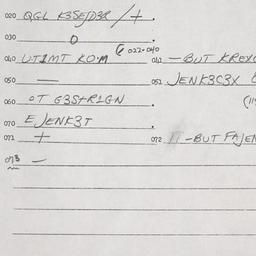 020 QGL K3SEJD3R / +.
030 0 .
G 022-040
040 UT1MT KOM 041 - BUT KREX
050 — 051 JENK3C3X
060 OT G3S+R1GN . (11
070 EJENK3T .
071 + 072 - BUT FAJEN
073 —